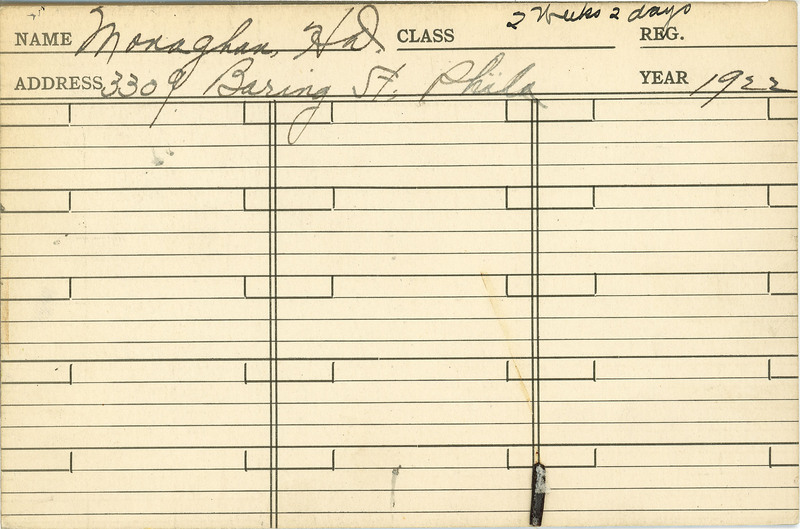 2 Weeks 2 days
NAME Monaghan, Hal. CLASS REG.
ADDRESS 3309 Baring St. Phila YEAR 1922